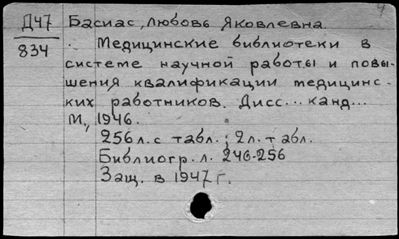 4
Д47 Басиас, Любовь Яковлевна.
834 Медицинские библиотеки в
системе научной работы и повы-
шения квалификации медицинс-
ких работников. Дисс... канд...
М., 1946.
256 л. с табл.; 2 л. табл.
Библиогр. л. 246-256
Защ. в 1947 г.